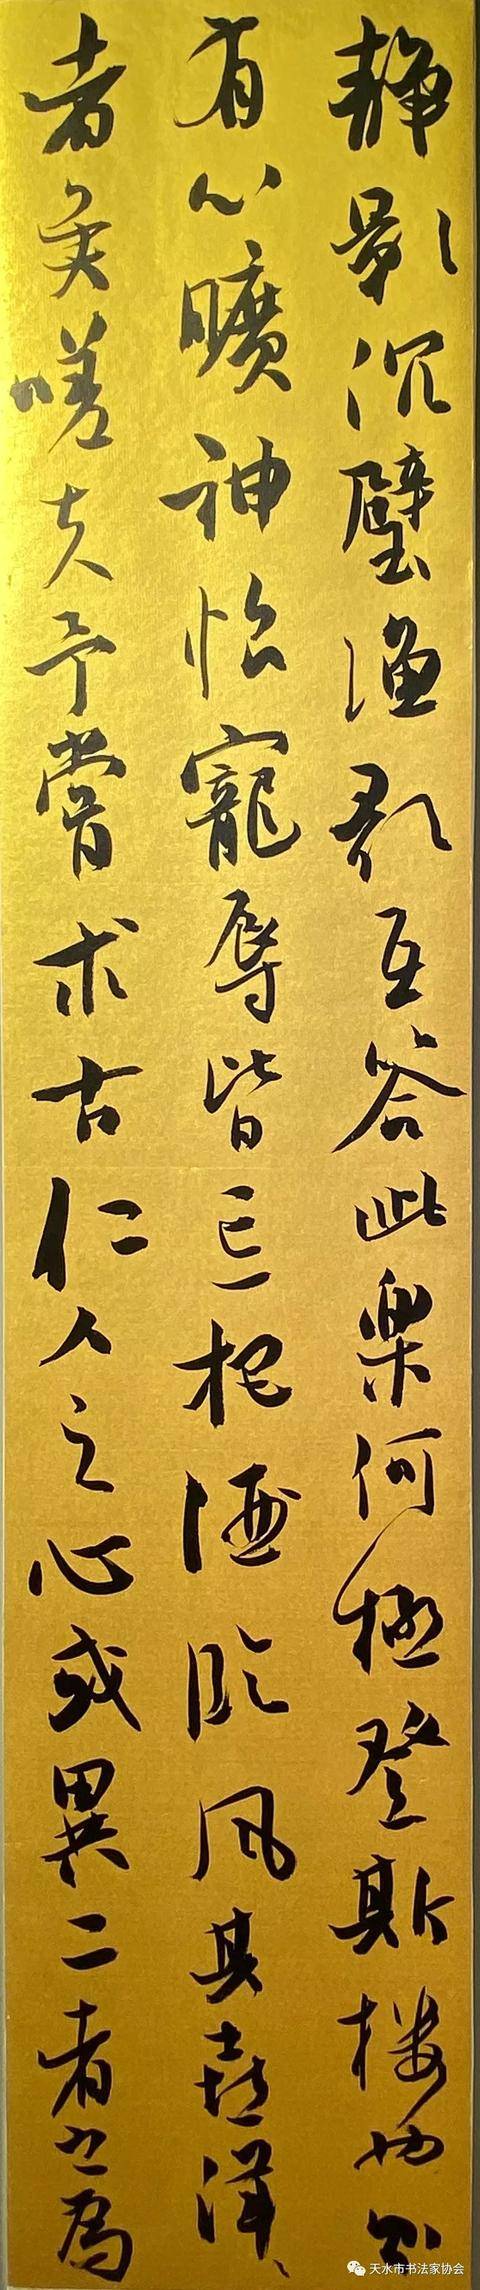 静影沉璧渔歌互答此樂何極登斯楼也则
有心曠神怡寵辱皆忘把酒临风其喜洋、
者矣嗟夫予嘗求古仁人之心或異二者之為
天水市书法家协会